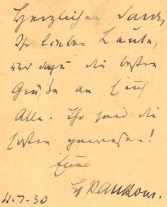 Herzlichen Dank,
Ihr lieben Leute,
und die besten
Grüße an Euch
Alle. Ihr seid die
besten gewesen!
Eure
4.7.30